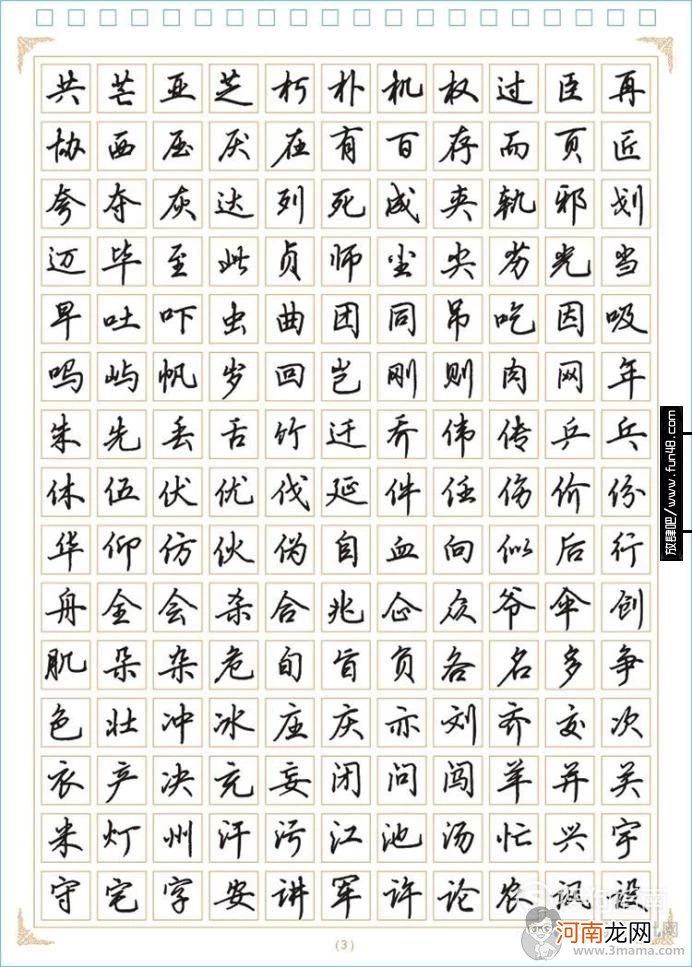 共芒亚芝朽朴机权过臣再
协西压厌在有百存而页匠
夸夺灰达列死成夹轨邪划
迈毕至此贞师尘尖劣光当
早吐吓虫曲团同吊吃因吸
吗屿帆岁回岂刚则肉网年
朱先丢舌竹迁乔伟传乒乓
休伍伏优伐延件任伤价份
华仰仿伙伪自血向似后行
舟全会杀合兆企众爷伞创
肌朵杂危旬旨负各名多争
色壮冲冰庄庆亦刘齐交次
衣产决充妄闭问闯羊并关
米灯州汗污江池汤忙兴宇
守宅字安讲军许论农讽设
(3)
放肆吧/www.fun48.com
河南龙网
www.3mama.com